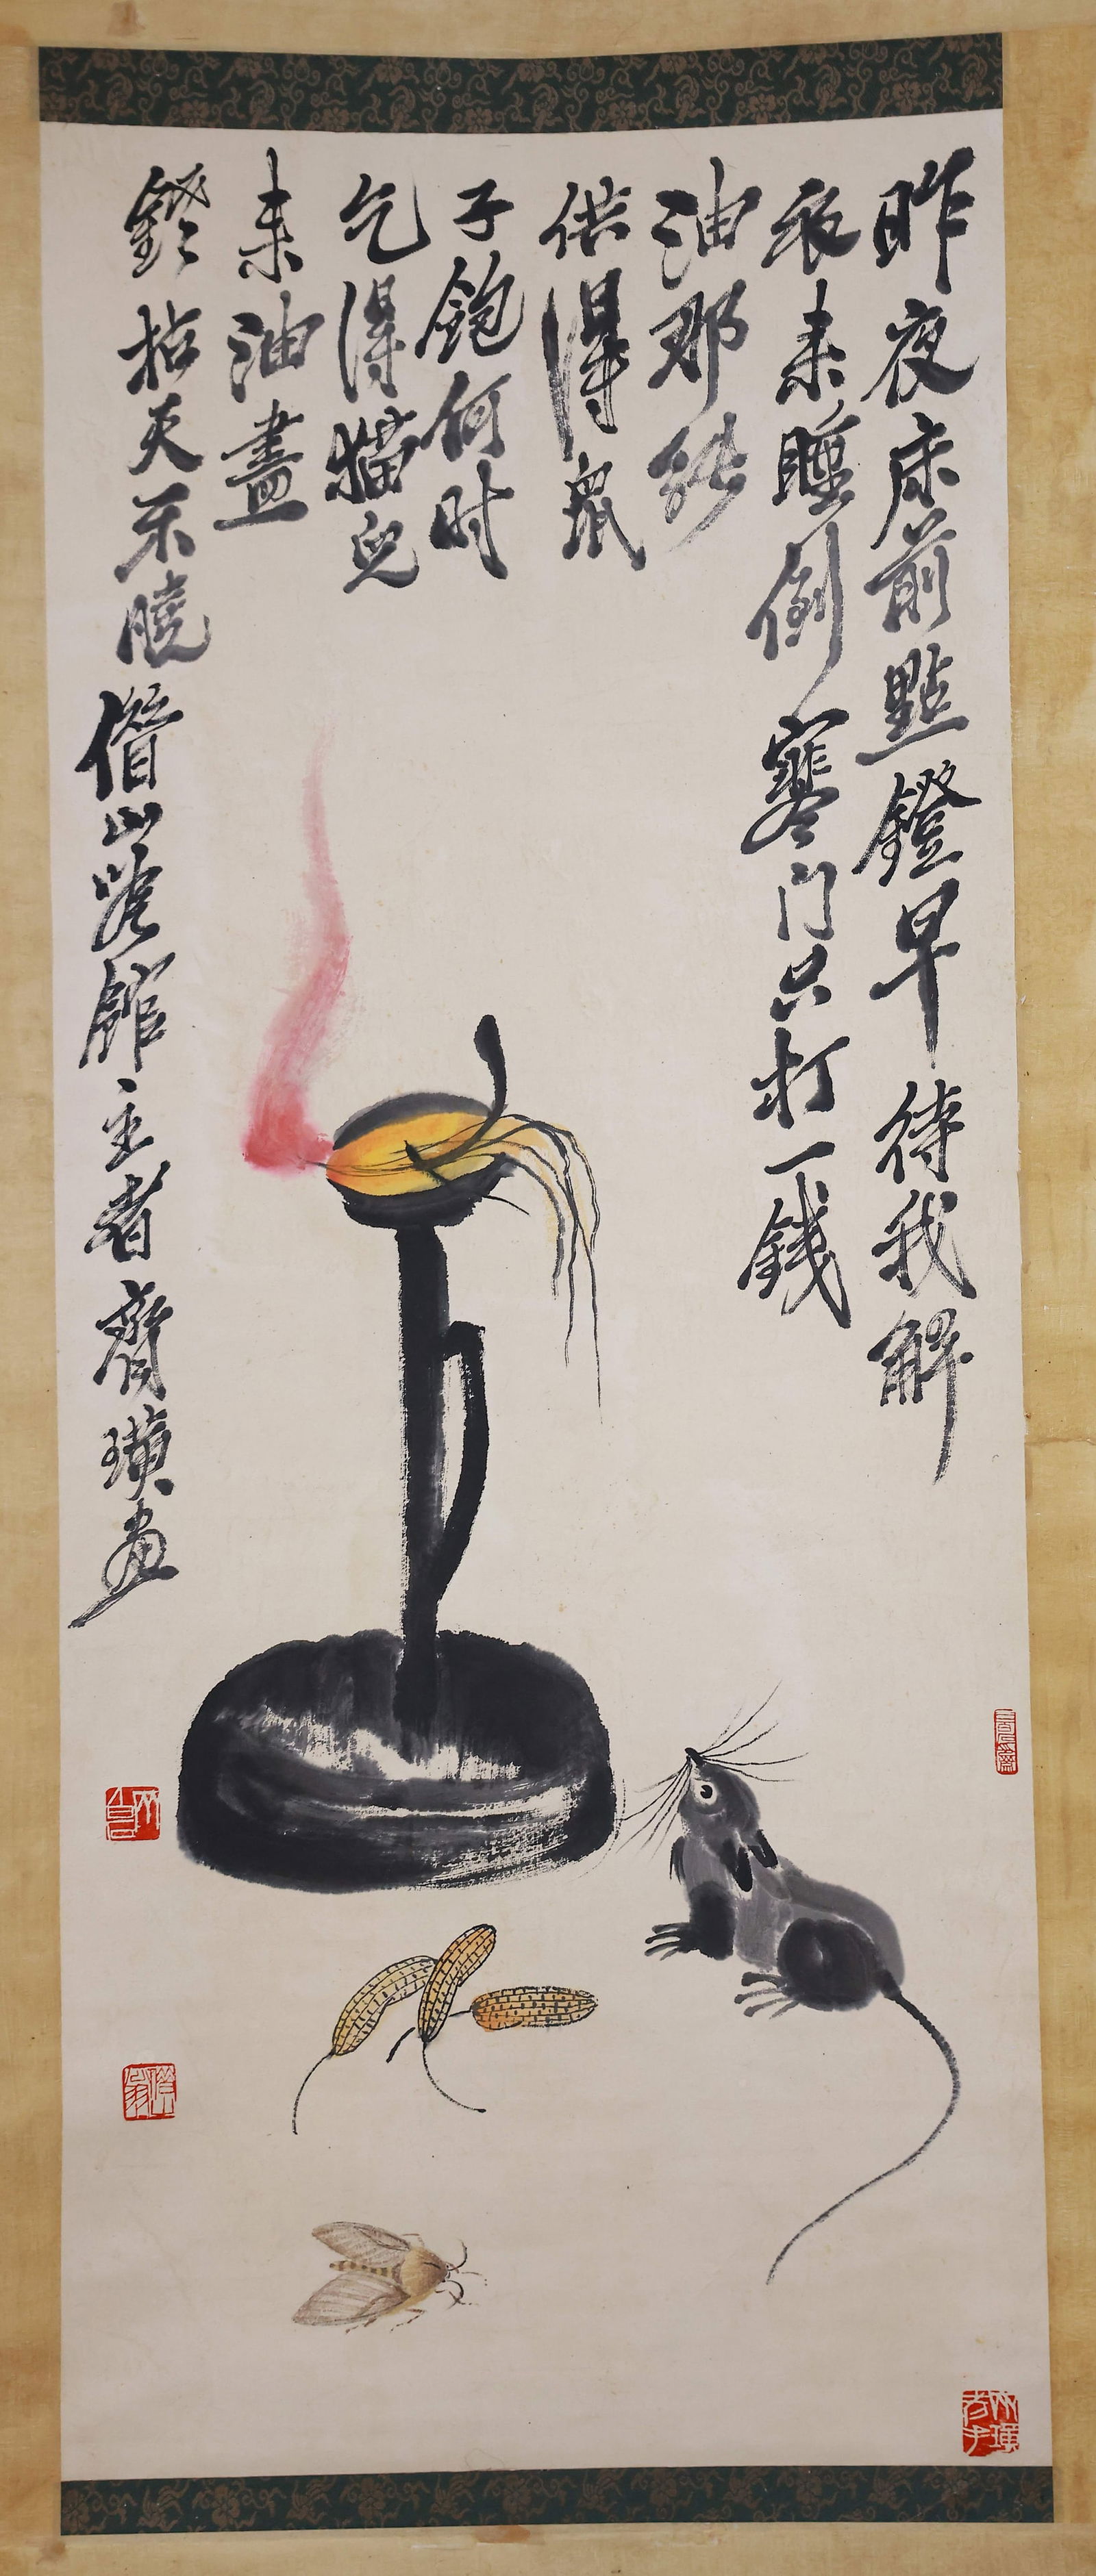 昨夜床前點鐙早待我解
衣來睡倒寒門只打一錢
油那能
供得鼠
子飽何時
乞得猫兒
來油盡
鐙枯天不曉
借山唫館主者齊璜畫